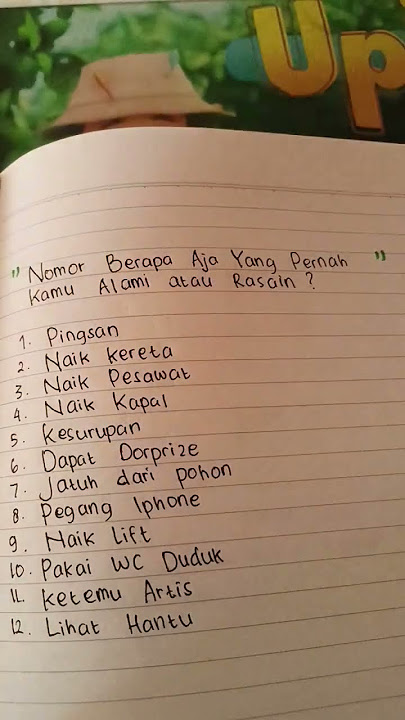 Up
" Nomor Berapa Aja Yang Pernah "
Kamu Alami atau Rasain ?
1. Pingsan
2. Naik kereta
3. Naik Pesawat
4. Naik Kapal
5. Kesurupan
6. Dapat Dorprize
7. Jatuh dari pohon
8. Pegang Iphone
9. Naik Lift
10. Pakai WC Duduk
11. Ketemu Artis
12. Lihat Hantu